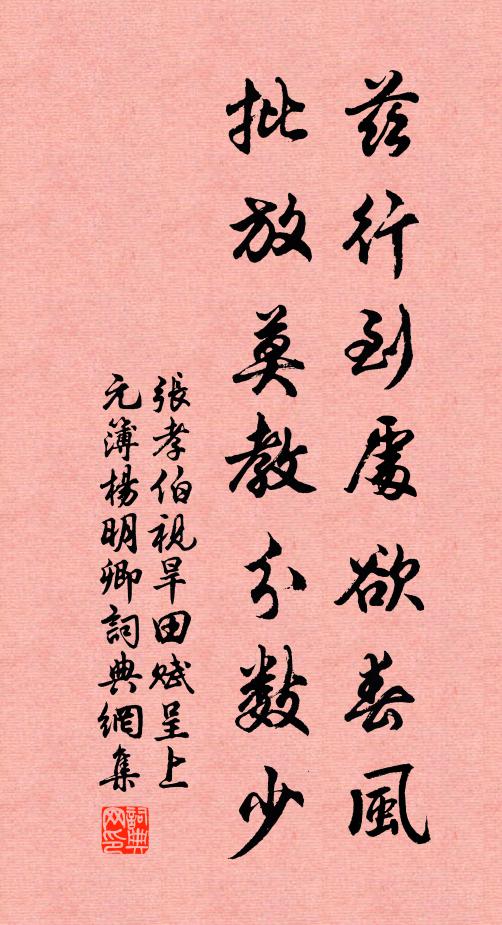 茲行到處欲春風
批放莫教分數少
張孝伯視旱田賦呈上
元簿楊明卿詞典網集
詞典網印